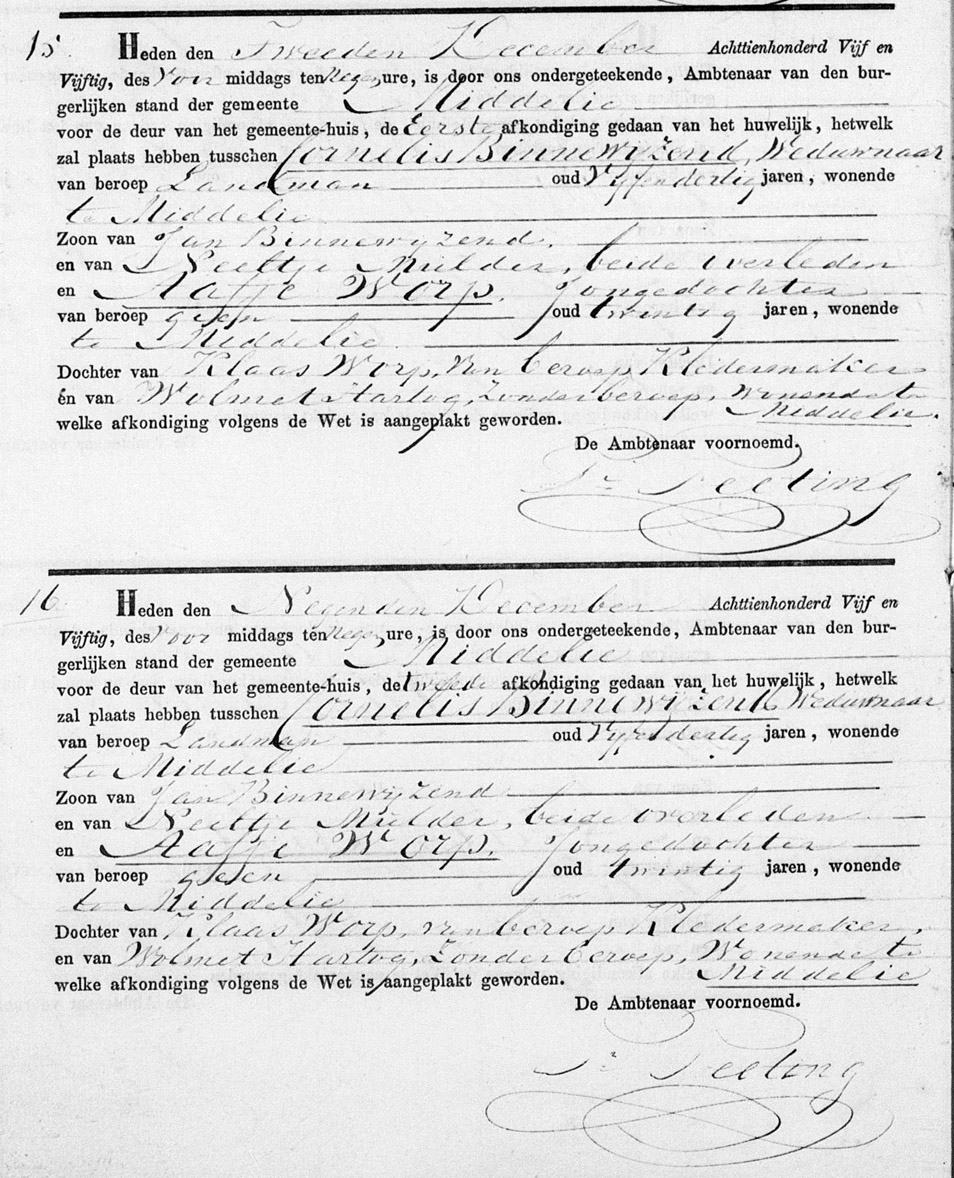 15. Heden den Tweeden December Achttienhonderd Vijf en
Vijftig, des Voor middags ten Negen ure, is door ons ondergeteekende, Ambtenaar van den bur-
gerlijken stand der gemeente Middelie
voor de deur van het gemeente-huis, de Eerste afkondiging gedaan van het huwelijk, hetwelk
zal plaats hebben tusschen Cornelis Binnewijzend, Weduwnaar
van beroep Landman oud Vijfendertig jaren, wonende
te Middelie
Zoon van Jan Binnewijzend,
en van Neeltje Mulder, beide overleden
en Aafje Worp. Jongedochter
van beroep geen oud twintig jaren, wonende
te Middelie.
Dochter van Klaas Worp, van beroep Kledermaker
én van Wolmet Hartog, Zonder beroep, Wonende te
Middelie.
welke afkondiging volgens de Wet is aangeplakt geworden.
De Ambtenaar voornoemd.
Pr Peeting
16. Heden den Negenden December Achttienhonderd Vijf en
Vijftig, des Voor middags ten Negen ure, is door ons ondergeteekende, Ambtenaar van den bur-
gerlijken stand der gemeente Middelie
voor de deur van het gemeente-huis, de tweede afkondiging gedaan van het huwelijk, hetwelk
zal plaats hebben tusschen Cornelis Binnewijzend Weduwnaar
van beroep Landman oud Vijfendertig jaren, wonende
te Middelie
Zoon van Jan Binnewijzend
en van Neeltje Mulder, beide overleden
en Aafje Worp. Jongedochter
van beroep geen oud twintig jaren, wonende
te Middelie
Dochter van Klaas Worp, van beroep Kledermaker,
en van Wolmet Hartog, Zonder beroep, Wonende te
Middelie
welke afkondiging volgens de Wet is aangeplakt geworden.
De Ambtenaar voornoemd.
Pr Peeting